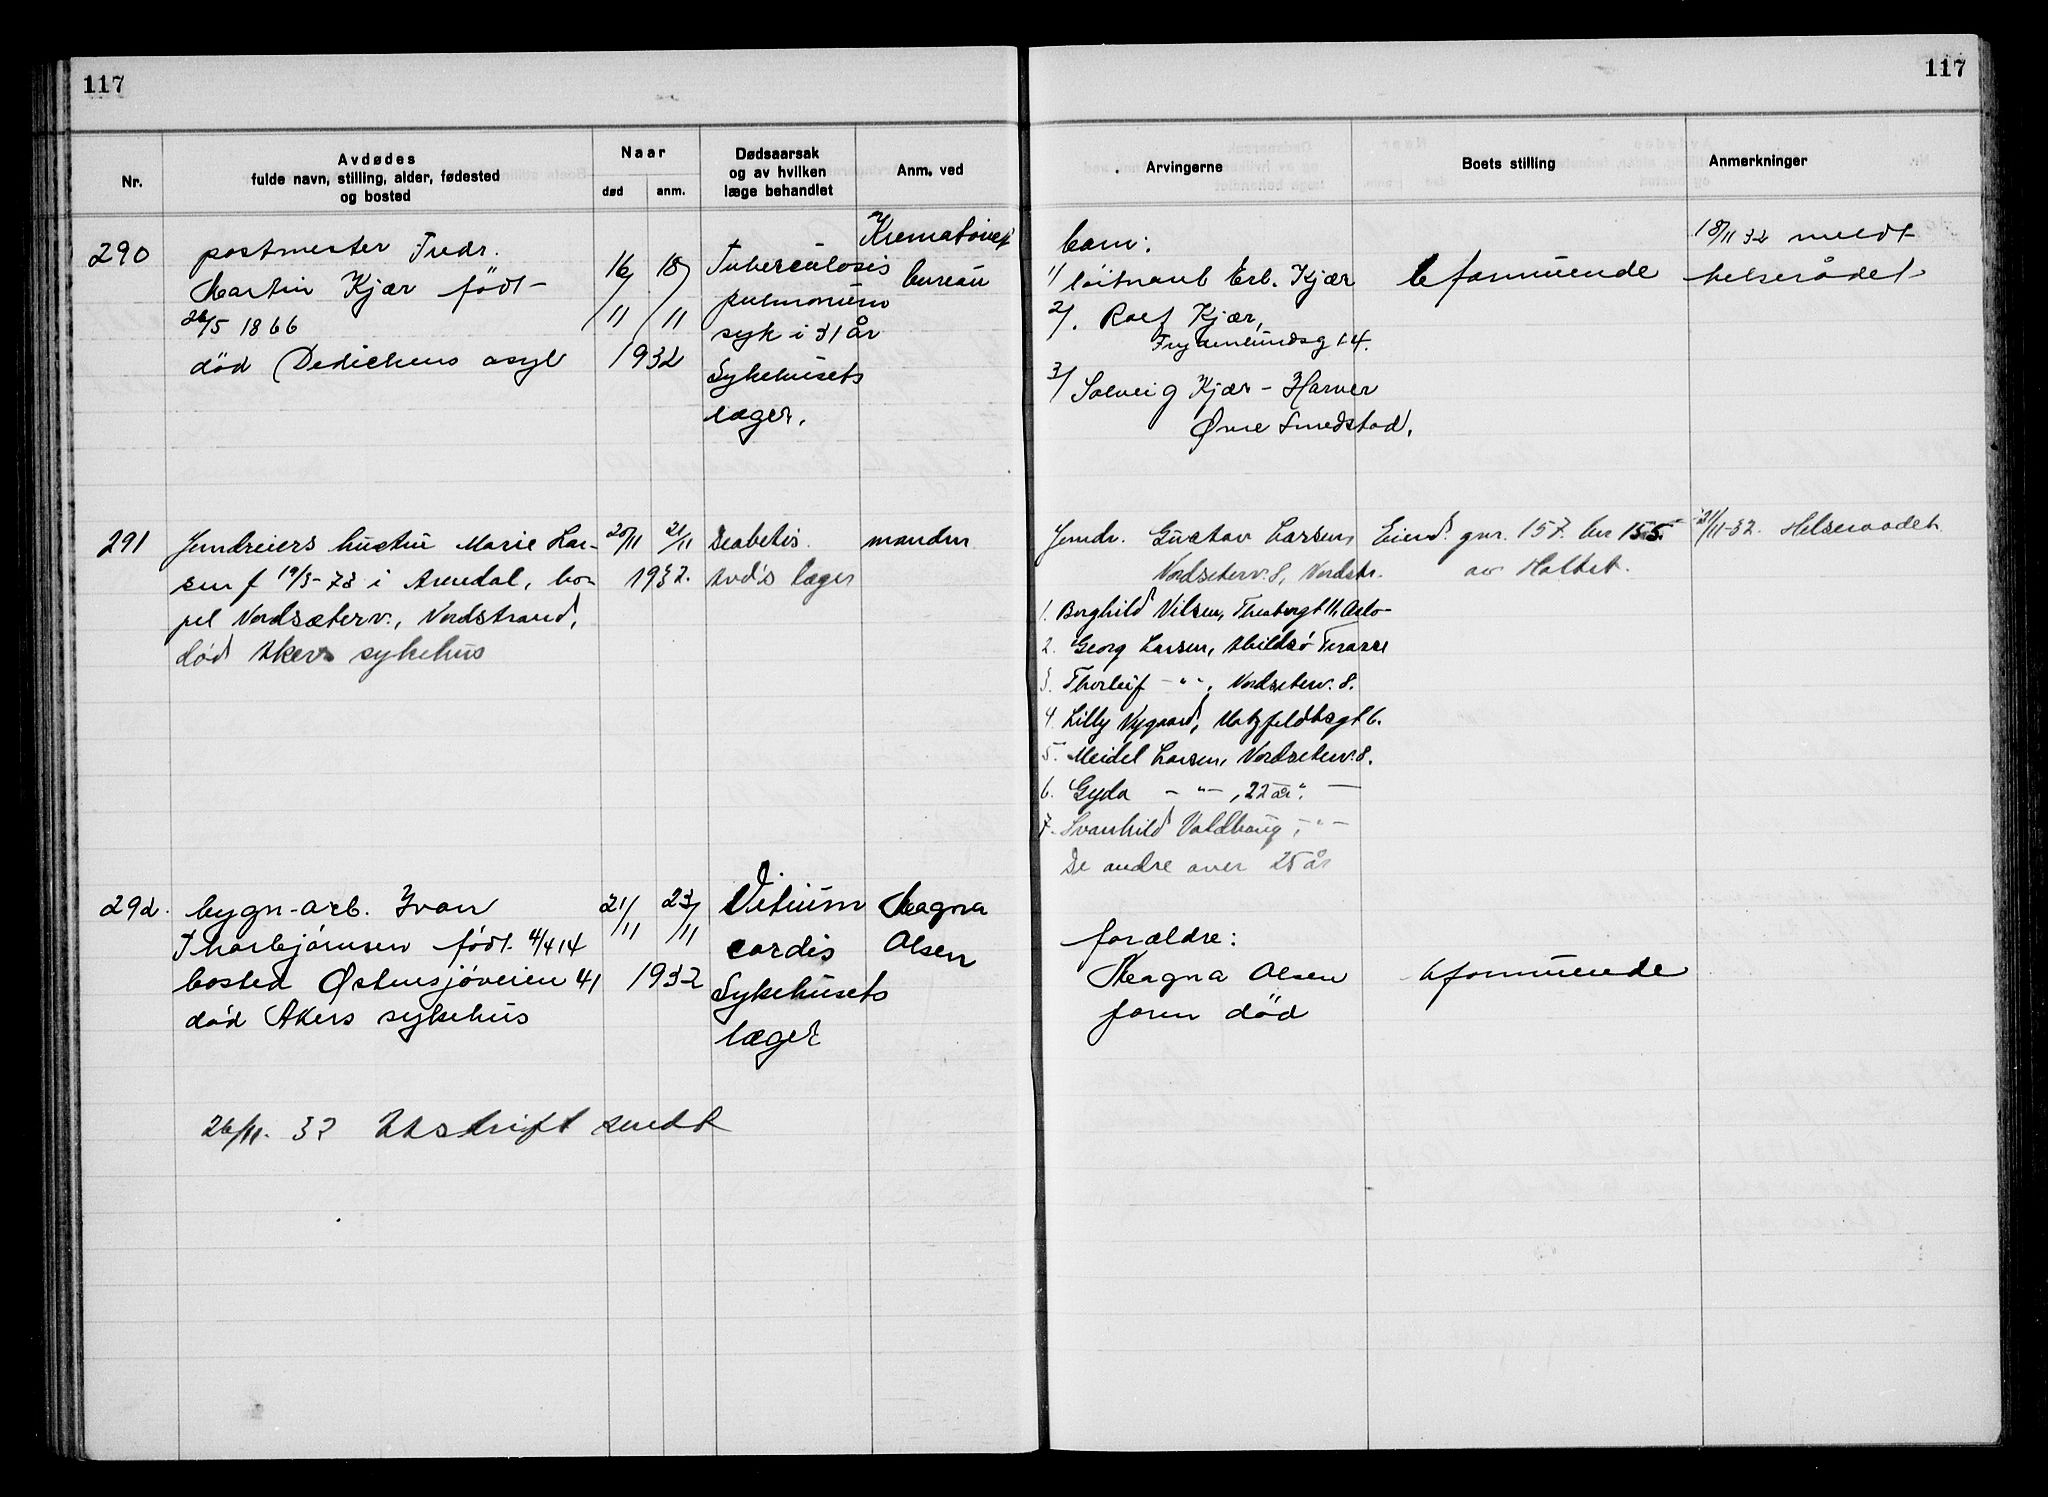 117
117
Nr.
Avdødes
fulde navn, stilling, alder, fødested
og bosted
Naar
død
anm.
Dødsaarsak
og av hvilken
læge behandlet
Anm. ved
Arvingerne
Boets stilling
Anmerkninger
290
postmester Fredr.
Martin Kjær født
26/5 1866
død Dedichens asyl
16/11
18/11
1932
Tuberculosis
pulmonum
syk i 31 år
Sykehusets
læger.
Krematoriets
bureau
barn:
1/ løitnant Erl. Kjær
2/. Rolf Kjær,
14.
3/ Solveig Kjær - Harver
Øvre Smedstad.
formuende
18/11 32 meldt
helserådet
291
hustru Marie Lar-
sen f 19/3-73 i Arendal, bo-
pel Nordsæterv., Nordstrand,
død Akers sykehus
20/11
21/11
1932.
Deabetis.
Avd's læger
manden
Gustav Larsen,
Nordseterv. 8, Nordstr.
1. Borghild Nilsen, Oslo
2. Georg Larsen, Abildsø Terasse
3. Thorleif - " -, Nordseterv. 8.
4. Lilly Nygaard, 6.
5. Meidel Larsen, Nordseterv. 8.
6. Gyda - " -, 22 år ". -
7. Svanhild Valdhaug, - " -
De andre over 25 år
Eiend. gnr. 157. bnr 155
av Holtet.
21/11-32. Helseraadet
292.
bygn-arb. Ivar
Thorbjörnsen født 4/4 14
bosted Østensjöveien 41
død Akers sykehus
21/11
23/11
1932
Vitium
cordis
Sykehusets
læger
Magna
Olsen
forældre:
Magna Olsen
faren død
uformuende
26/11. 32 Utskrift sendt